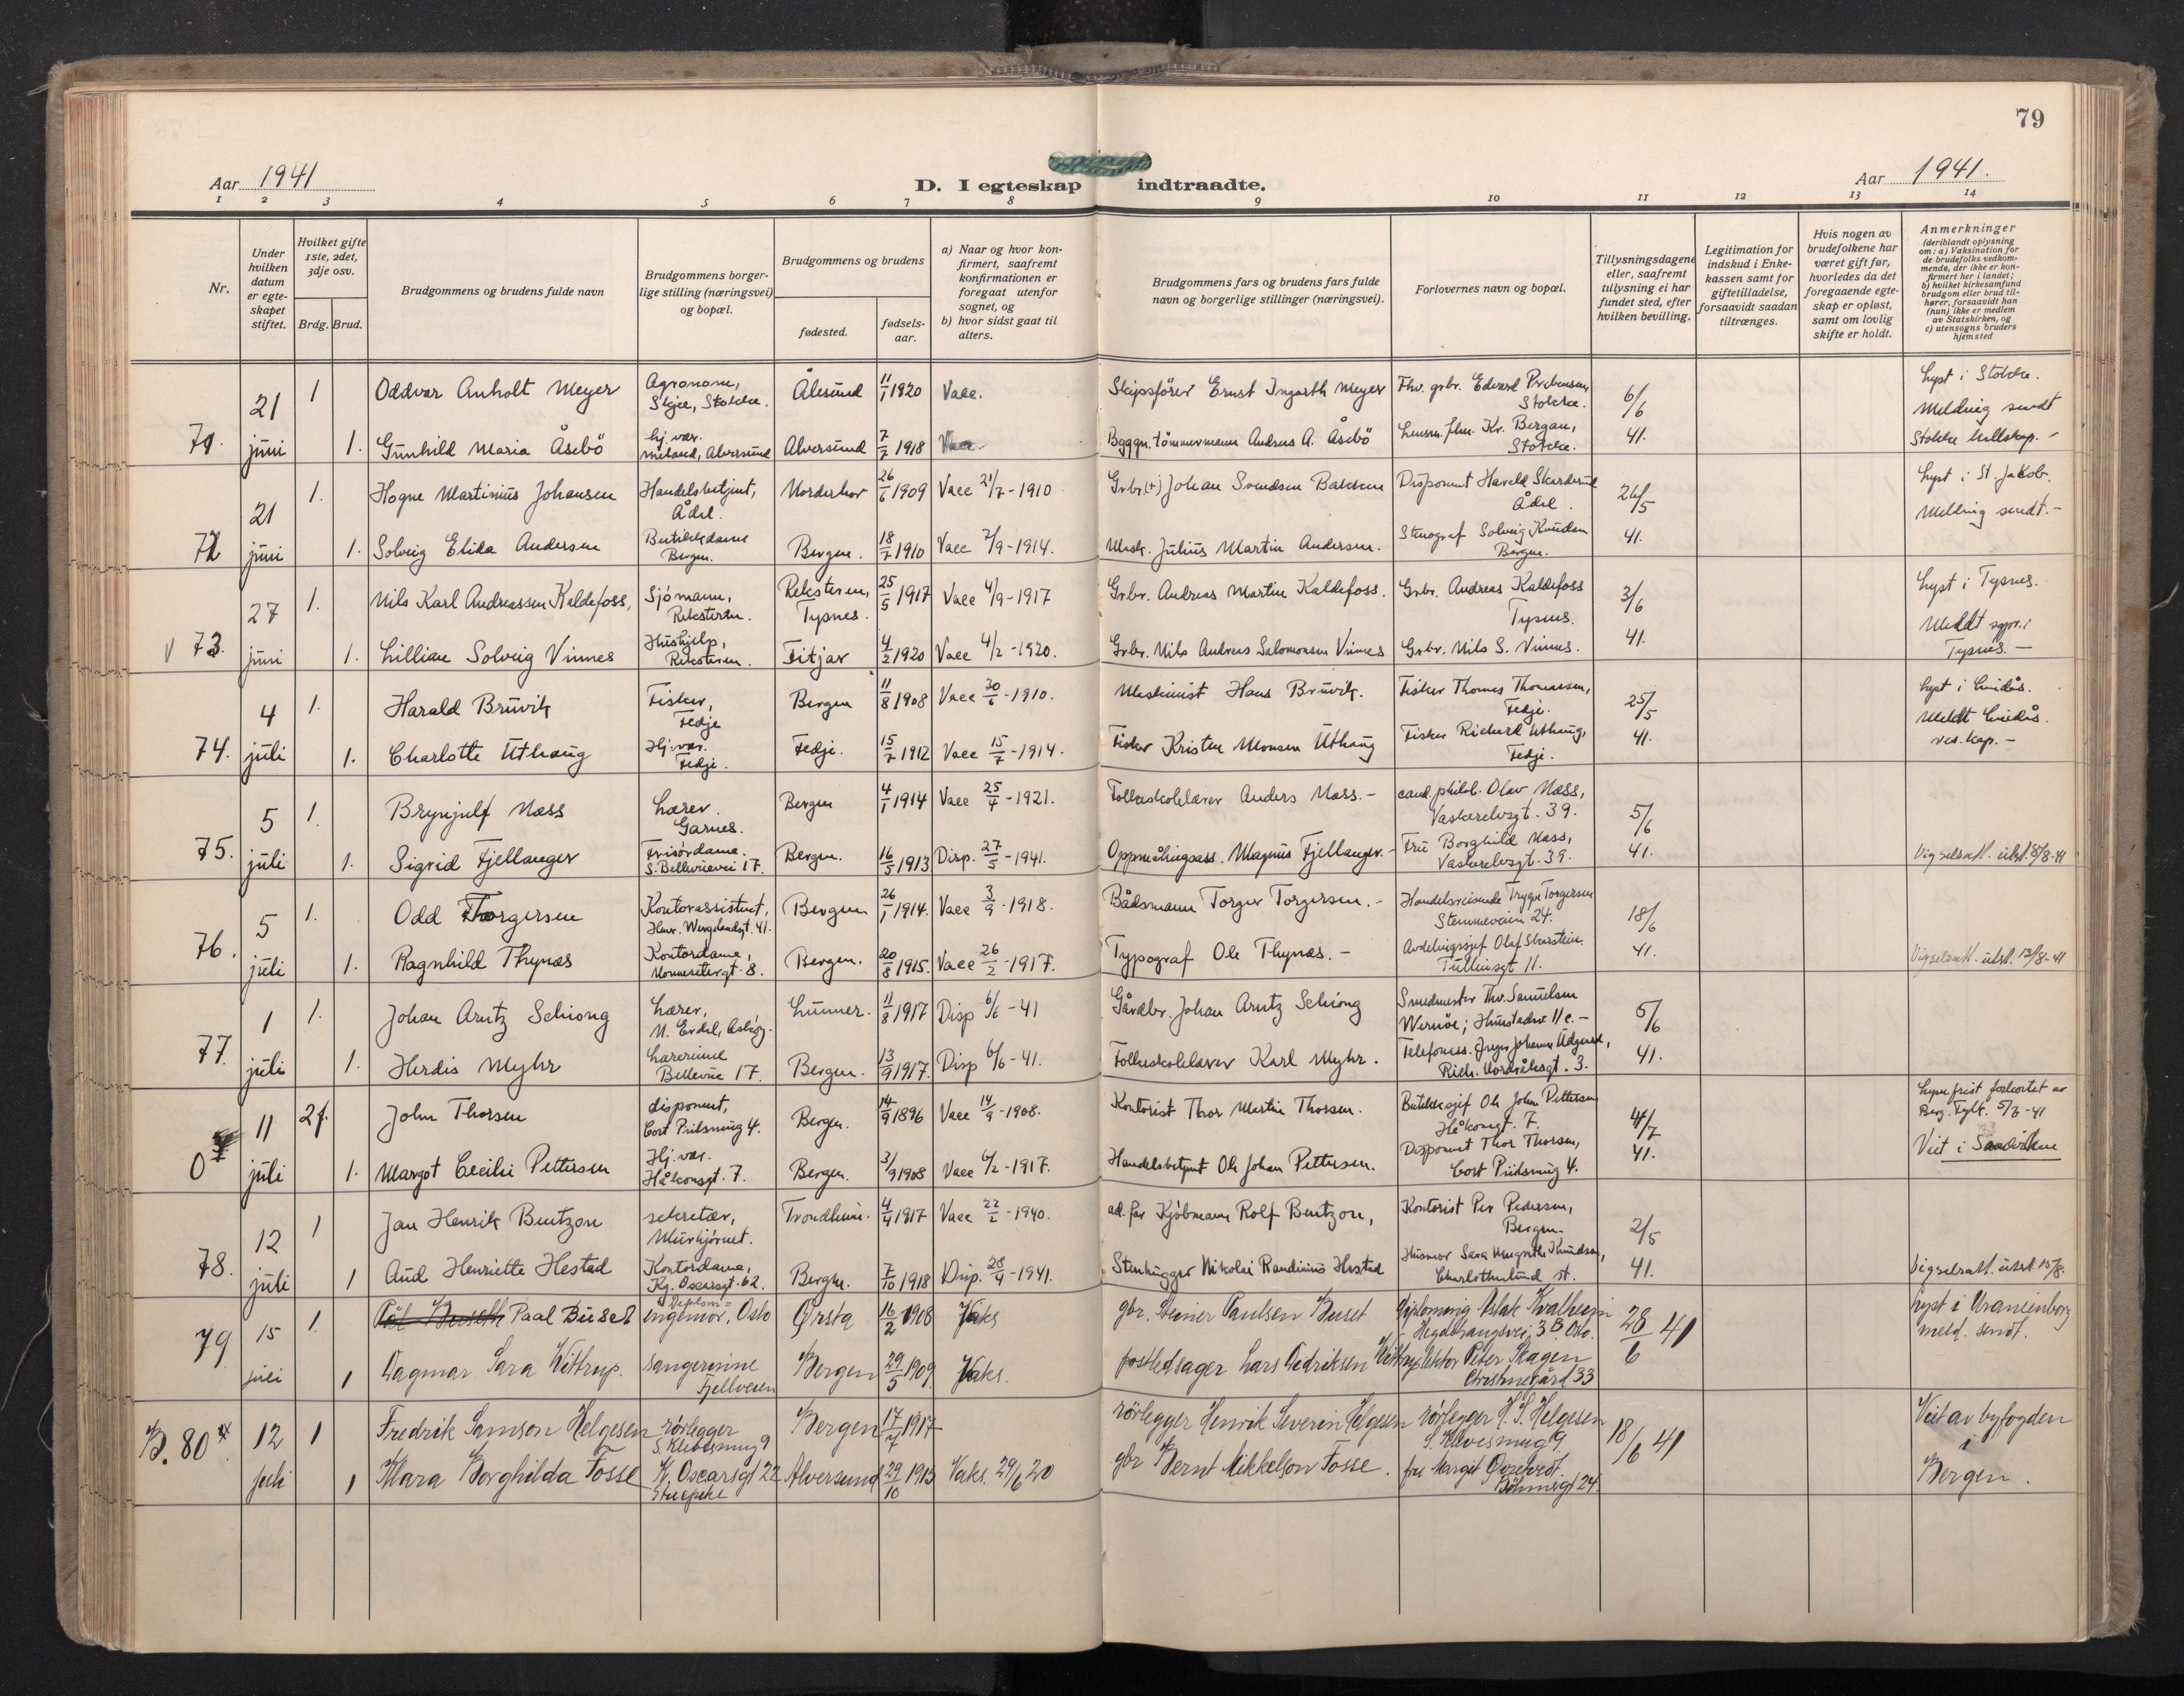 79
Aar 1941
D. I egteskap indtraadte.
Aar 1941.
1 2 3 4 5 6 7 8 9 10 11 12 13 14
Nr.
Under hvilken datum er egteskapet stiftet.
Hvilket gifte 1ste, 2det, 3dje osv.
Brdg. Brud.
Brudgommens og brudens fulde navn
Brudgommens borgerlige stilling (næringsvei) og bopæl.
Brudgommens og brudens
fødested.
fødselsaar.
a) Naar og hvor konfirmert, saafremt konfirmationen er foregaat utenfor sognet, og
b) hvor sidst gaat til alters.
Brudgommens fars og brudens fars fulde navn og borgerlige stillinger (næringsvei).
Forlovernes navn og bopæl.
Tillysningsdagene eller, saafremt tillysning ei har fundet sted, efter hvilken bevilling.
Legitimation for indskud i Enkekassen samt for giftetilladelse, forsaavidt saadan tiltrænges.
Hvis nogen av brudefolkene har været gift før, hvorledes da det foregaaende egteskap er opløst, samt om lovlig skifte er holdt.
Anmerkninger
(deriblandt oplysning om: a) Vaksination for de brudefolks vedkommende, der ikke er konfirmert her i landet;
b) hvilket kirkesamfund brudgom eller brud tilhører, forsaavidt han (hun) ikke er medlem av Statskirken, og
c) utensogns bruders hjemsted
71. 21 juni 1 Oddvar Anholt Meyer Agronom, Skjee, Stokke. Ålesund 11/1 1920 Vacc. Skipsfører Ernst Ingarth Meyer Fhv. grbr. Edvard Prebensen Stokke. 6/6 41. Lyst i Stokke.
1. Gunhild Maria Åsebö hj. vær. Meland, Alversund Alversund 7/7 1918 Vacc. Byggn. tömmermann Andreas A. Åsebö Lensm. flm. Kr. Bergan, Stokke. Melding sendt Stokke
72 21 juni 1. Hogne Martinius Johansen Handelsbetjent, Ådal. Norderhov 26/6 1909 Vacc 21/7-1910 Grbr. (+) Johan Svendsen Bakken Disponent Harald Skarderud Ådal. 26/5 41. Lyst i St. Jakob.
1. Solveig Elida Andersen Butikkdame Bergen. Bergen. 18/7 1910 Vacc 2/9-1914. Mask. Julius Martin Andersen. Stenograf Solveig Knudsen Bergen. Melding sendt.-
V 73. 27 juni 1. Nils Karl Andreassen Kaldefoss, Sjömann, Reksteren. Reksteren, Tysnes. 25/5 1917 Vacc 4/9-1917 Grbr. Andreas Martin Kaldefoss. Grbr. Andreas Kaldefoss Tysnes. 3/6 41. Lyst i Tysnes.
1. Lillian Solveig Vinnes Hushjelp, Reksteren. Fitjar 4/2 1920 Vacc 4/2-1920. Grbr. Nils Andreas Salomonsen Vinnes Grbr. Nils S. Vinnes. Meldt sgpr. i Tysnes.-
74. 4 juli 1. Harald Bruvik Fisker, Fedje Bergen 11/8 1908 Vacc 30/6-1910. Maskinist Hans Bruvik. Fisker Thomas Thomassen, Fedje. 25/5 41. Lyst i Lindås.
1. Charlotte Uthaug Hj. vær. Fedje. Fedje. 15/7 1912 Vacc 15/7-1914. Fisker Kristen Monsen Uthaug Fisker Rickard Uthaug, Fedje. Meldt Lindås. res. kap.-
75. 5 juli 1. Brynjulf Næss Lærer. Garnes. Bergen 4/1 1914 Vacc 25/4-1921. Folkeskolelærer Anders Næss.- cand. philol. Olav Næss, Vaskerelvsgt. 39. 5/6 41.
1. Sigrid Fjellanger Frisördame. S. Bellevuevei 17. Bergen. 16/5 1913 Disp. 27/5-1941. Oppmålingsass. Magnus Fjellanger.- Fru Borghild Næss, Vaskerelvsgt. 39. Vigselsatt. utst. 8/8-41
76. 5 juli 1. Odd Thorgersen Kontorassistent, Henr. Wergelandsgt. 41. Bergen 26/1 1914. Vacc 3/9-1918. Bådsmann Torger Torgersen.- Handelsreisende Trygve Torgersen Stemmeveien 24. 18/6 41.
1. Ragnhild Thynæs Kontordame, Nonnestergt. 8. Bergen. 20/8 1915. Vacc 26/2-1917. Typograf Ole Thynæs.- Avdelingssjef Olaf Skarstein. Tullinsgt 11. Vigselsatt. utst. 13/8-41
77. 1 juli 1. Johan Arntz Schiong Lærer, N. Erdal, Askøy. Lunner. 11/8 1917 Disp 6/6-41 Gårdbr. Johan Arntz Schiong Smedmester Thv. Samuelsen Wernöe; Hunstadsv. 11c.- 5/6 41.
1. Herdis Myhr Lærerinne Bellevue 17. Bergen. 13/9 1917. Disp 6/6-41. Folkeskolelærer Karl Myhr. Rich. Nordråksgt. 3.
0 11 juli 2f. John Thorsen disponent, Cort Piilsmug 4. Bergen. 14/9 1896 Vacc 14/9-1908. Kontorist Thor Martin Thorsen. Butikksjef Ole Johan Pettersen Håkonsgt. 7. 4/7 41. Lysn. frist forkortet av Berg. Fylk. 5/7-41
1. Margot Cecilie Pettersen Hj. vær. Håkonsgt. 7. Bergen. 3/9 1908 Vacc 6/2-1917. Handelsbetjent Ole Johan Pettersen. Disponent Thor Thorsen, Cort Piilsmug 4. Viet i Sandviken
78. 12 juli 1 Jan Henrik Bentzon sekretær, Murhjörnet. Trondheim. 4/4 1917 Vacc 22/2-1940. ad. far Kjöbmann Rolf Bentzon, Kontorist Per Pedersen, Bergen. 2/5 41.
1 Aud Henriette Hestad Kontordame, Kg. Oscarsgt. 62. Bergen. 7/10 1918 Disp. 28/4-1941. Stenhugger Nikolai Randinius Hestad Husmor Sara Magnethe Knudsen, Charlottenlund st. Vigselsatt. utst. 15/8.
79 15 juli 1. Paal Buset Diplomingeniør, Oslo Ørsta 16/2 1908 Vaks gbr. Steiner Paulsen Buset Diploming Aslak Kvalheim Hegdehaugsvei 3B Oslo. 28/6 41 lyst i Uranienborg meld. sendt.
1 Dagmar Sara Wittrup. sangerinne Fjellveien Bergen 29/5 1909 Vaks. postbedsager Lars Didriksen Wittrup lektor Peter Skagen Christinegård 33
B. 80 12 juli 1 Fredrik Samson Helgesen rørlegger S. Klevesmug 9 Bergen 17/7 1917 rørlegger Henrik Severin Helgesen rørlegger H. S. Helgesen S. Klevesmug 9. 18/6 41 Viet av byfogden i Bergen.
1 Klara Borghilda Fosse K. Oscarsgt 22 Stuepike Alversund 29/10 1915 Vaks. 29/6 20 gbr Bernt Mikkelson Fosse. fru Margit Øvretvedt. Böhmergt 24.